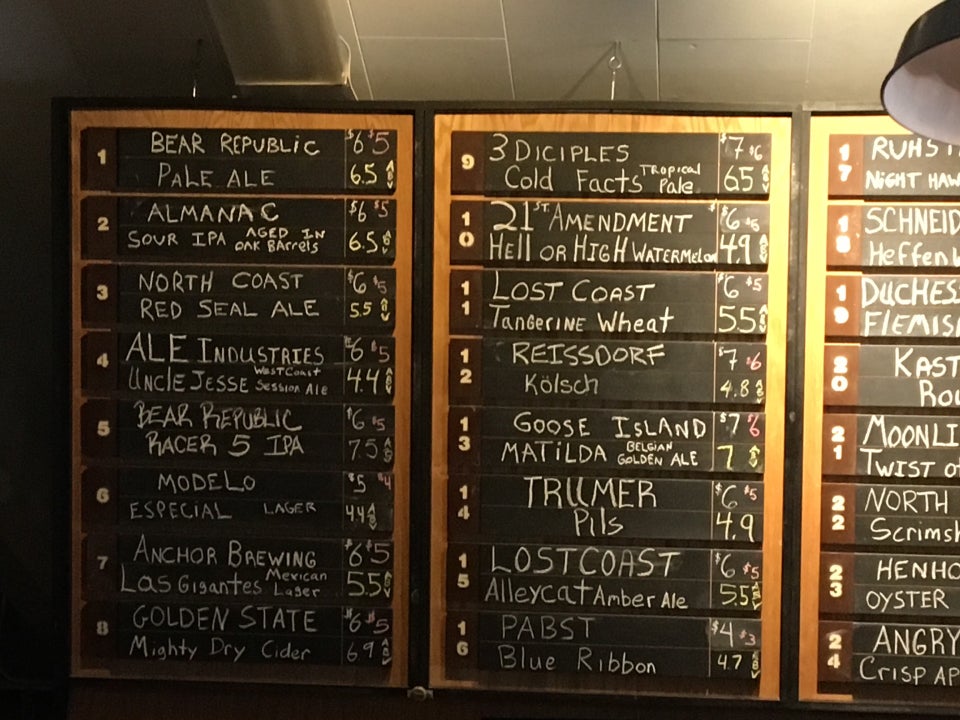 1 BEAR REPUBLIC $6 $5
PALE ALE 6.5 ABV
2 ALMANAC $6 $5
SOUR IPA AGED IN OAK BARRELS 6.5 ABV
3 NORTH COAST $6 $5
RED SEAL ALE 5.5 ABV
4 ALE INDUSTRIES $6 $5
UNCLE JESSE WEST COAST SESSION ALE 4.4 ABV
5 BEAR REPUBLIC $6 $5
RACER 5 IPA 7.5 ABV
6 MODELO $5 $4
ESPECIAL LAGER 4.4 ABV
7 ANCHOR BREWING $6 $5
Las Gigantes Mexican Lager 5.5 ABV
8 GOLDEN STATE $6 $5
Mighty Dry Cider 6.9 ABV
9 3 DICIPLES $7 $6
Cold Facts Tropical Pale 6.5 ABV
10 21ST AMENDMENT $6 $5
HELL OR HIGH WATERMELON 4.9 ABV
11 LOST COAST $6 $5
TANGERINE Wheat 5.5 ABV
12 REISSDORF $7 $6
Kölsch 4.8 ABV
13 GOOSE ISLAND $7 $6
MATILDA BELGIAN GOLDEN ALE 7 ABV
14 TRUMER $6 $5
Pils 4.9
15 LOSTCOAST $6 $5
Alleycat Amber Ale 5.5 ABV
16 PABST $4 $3
Blue Ribbon 4.7 ABV
17
NIGHT HAW
18 SCHNEID
Heffen
19 DUCHES
FLEMIS
20 KAST
Ro
21 MOONLI
TWIST
22 NORTH
Scrimsh
23 HENHO
OYSTER
24 ANGRY
CRISP AP